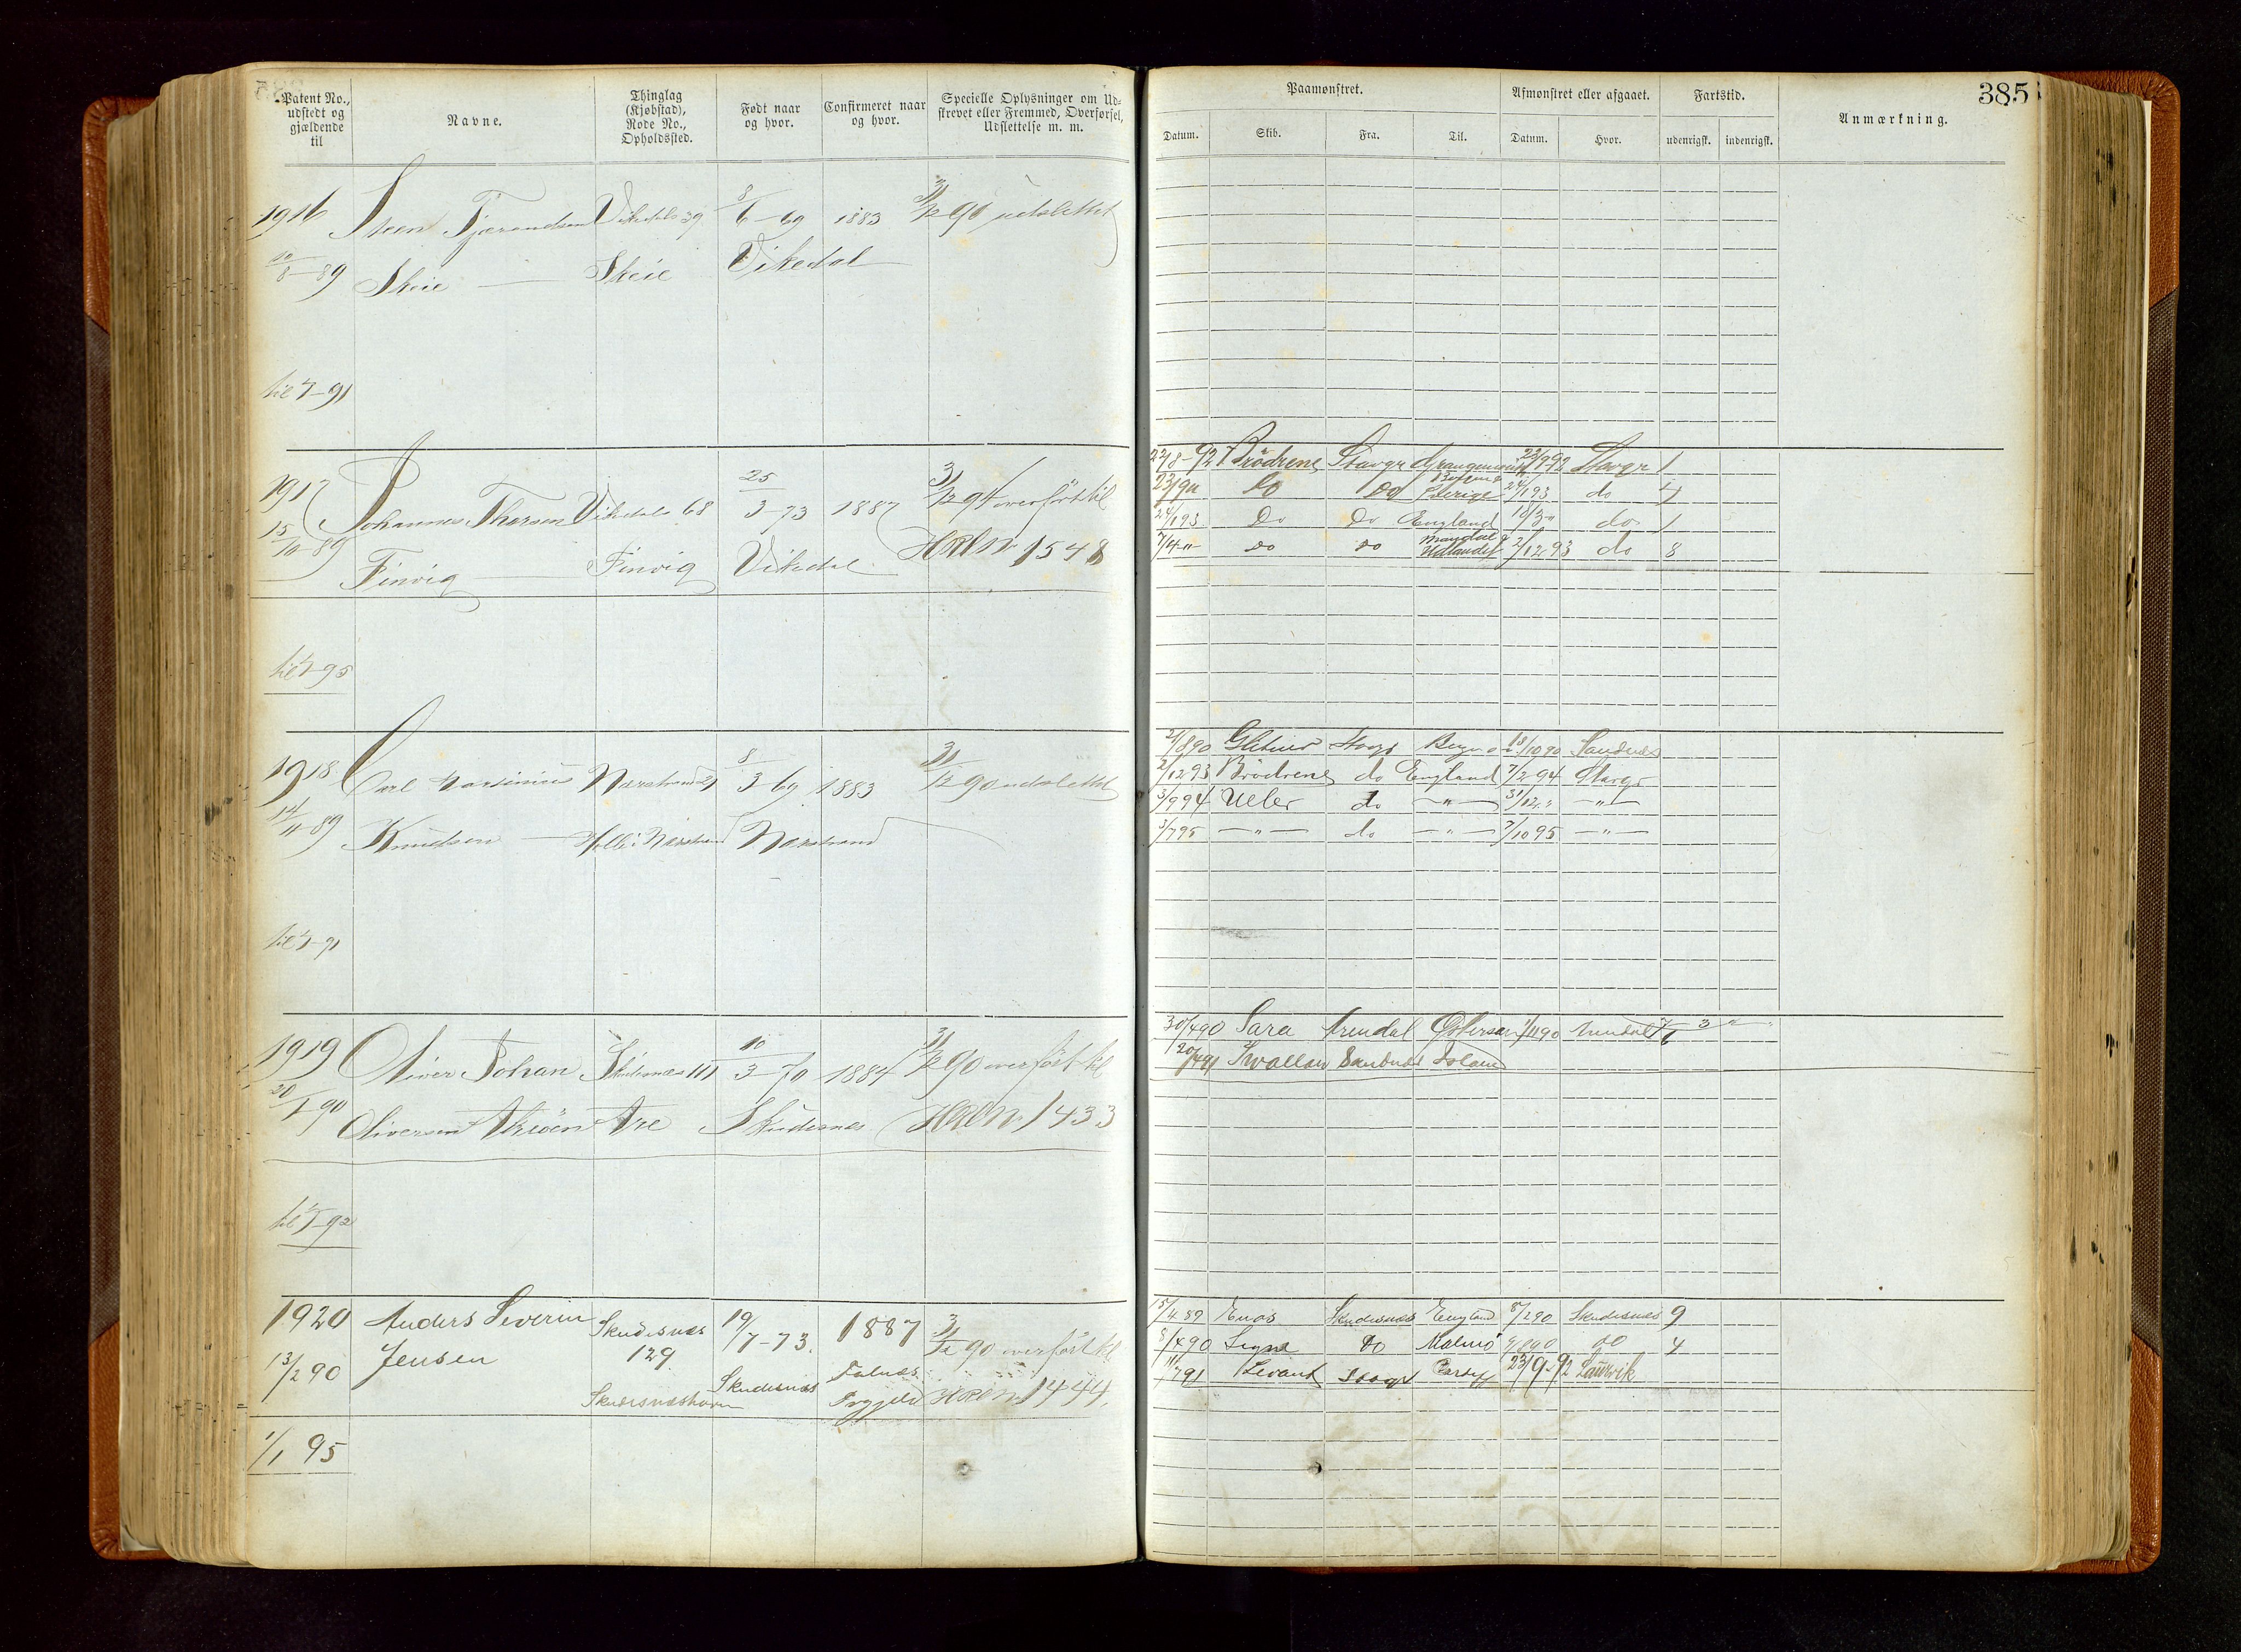 Patent No.,
udstedt og
gjældende
til
Navne.
Thinglag
(Kjøbstad),
Rode No.,
Opholdssted.
Født naar
og hvor.
Confirmeret naar
og hvor.
Specielle Oplysninger om Ud-
skrevet eller Fremmed, Overførsel,
Udslettelse m. m.
1916 Steen Tjerandsen Vikedals 39 8/6-69 1883 31/12 90 udslettet
10/8-89 Skeie Skeie Vikedal
til 1/1-91
1917 Johannes Tharsen Vikedals 68 25/3-73 1887 31/12 94 overført til
15/10 89 Finvig Finvig Vikedal HRL No 1548
til 1/1-95
1918 Carl Martinius Nærstrand 21 8/3-69 1883 31/12 90 udslettet
14/11 89 Knudsen Nærstrand Nærstrand
til 1/1-91
1919 Oliver Johan Skudesnæs 111 10/3-70 1884 31/12 90 overført til
20/1 90 Oliversen Are Skudesnæs HRL No 1433
til 1/1-92
1920 Anders Severin Skudesnæs 19/7-73. 1887 31/12 90 overført til
13/2 90 Jensen 129 Skudesnæs Falnæs HRL No 1444.
Skudesnæshavn
1/1 95
385
Paamønstret.
Afmønstret eller afgaaet.
Fartstid.
Anmærkning.
Datum. Skib. Fra. Til. Datum. Hvor. udenrigsk. indenrigsk.
27/8-92 Brödrene Stavgr 23/9 92 Stavgr 1
23/9 " Do Do Sverige 24/1 93 do 4
24/1 93 Do Do England 18/3 " do 1
7/4 " Do Do Udlandet 2/12 93 do 8
21/8 90 Stavgr 18/10 90 Sandnæs
2/12 93 Brödrene do England 7/2 94 Stavgr
3/9 94 do — " — 31/12 " — " —
3/7 95 — " — do — " — 7/10 95 — " —
30/4 90 Sara Arendal 1/11 90 Arendal 3
20/4 91 Swallow Sandnæs Island
15/4 89 Enos Skudesnæs England 8/2 90 Skudesnæs 9
8/4 90 Signe Do Malmö Do 4
11/7 91 Levant Stavgr Cardiff 23/9-92 Laurvik